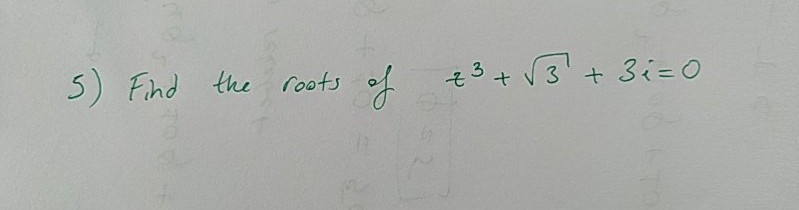 5) Find the roots of z³ + √3 + 3i = 0